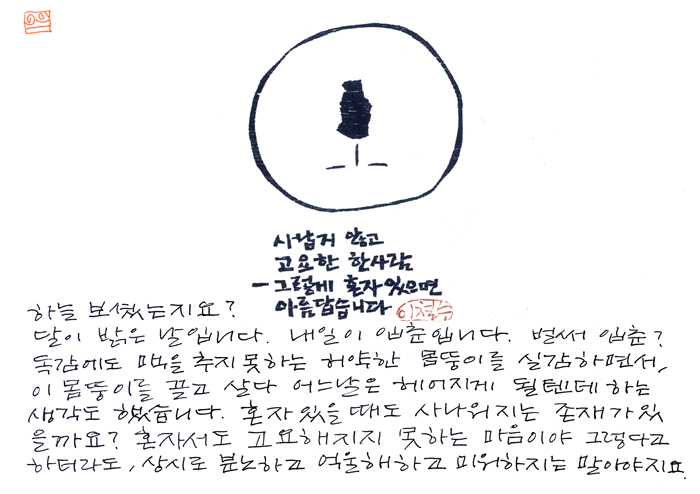 사납지 않고
고요한 한사람
- 그렇게 혼자 있으면
아름답습니다 이철수
하늘 보셨는지요?
달이 밝은 날입니다. 내일이 입춘입니다. 벌써 입춘?
독감에도 맥을 추지 못하는 허약한 몸뚱이를 실감하면서,
이 몸뚱이를 끌고 살다 어느날은 헤어지게 될텐데 하는
생각도 했습니다. 혼자 있을 때도 사나워지는 존재가 있
을까요? 혼자서도 고요해지지 못하는 마음이야 그렇다고
하더라도, 상시로 분노하고 억울해하고 미워하지는 말아야지요.